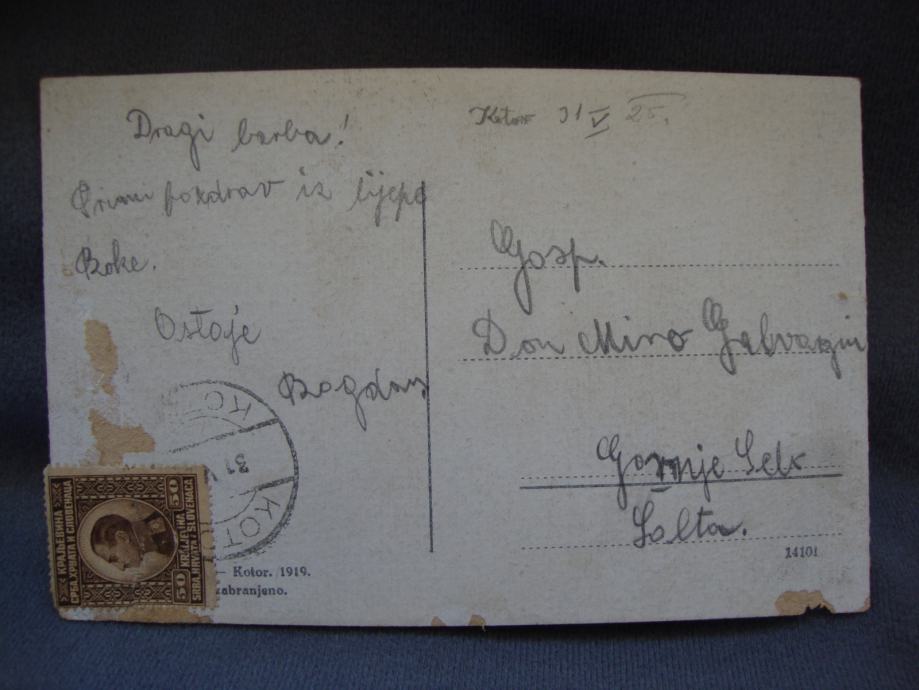 Dragi barba!
Primi pozdrav iz lijepe
Boke.
Ostaje
Bogdan
Kotor 31 V 25.
Gosp.
Don Miro Galvanin
Gornje Selo
Šolta.
14101
КРАЉЕВИНА
СРБА, ХРВАТА И СЛОВЕНАЦА
50 KRALJEVINA 50
SRBA, HRVATA I SLOVENACA
KOTOR
31 V
— Kotor. 1919.
zabranjeno.